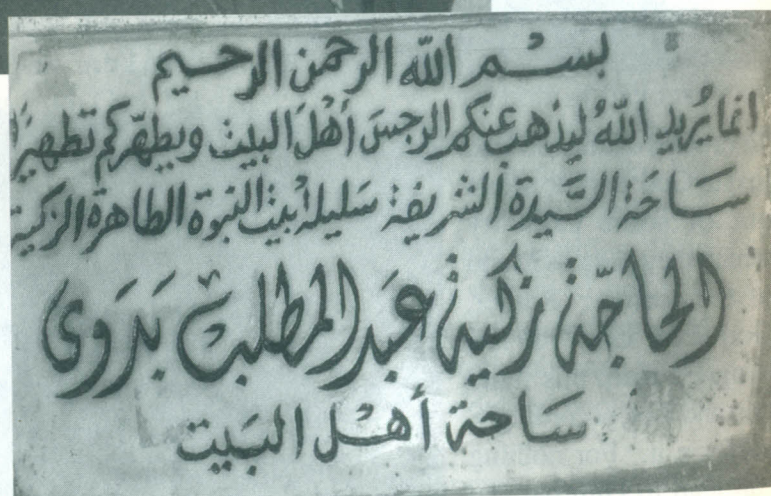 بسم الله الرحمن الرحيم
انما يُريد اللهُ ليذهب عنكم الرجسَ أهْلَ البيت ويطهّركم تطهيرًا
سَاحَة السَّيدة الشريفة سَليلة بيْت النبوة الطاهرة الزكية
الحاجّة زكية عَبد المطلب بَدَوى
سَاحة أهْل البَيت